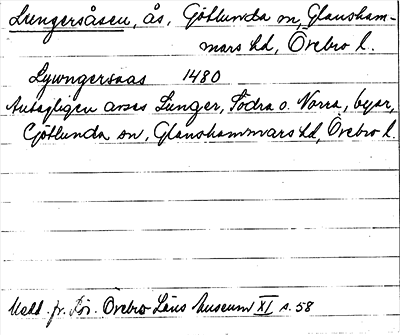 Lungersåsen, ås, Götlunda sn, Glansham-
mars hd, Örebro l.
Lywngersaas 1480
Antagligen avses Lunger, Södra o. Norra, byar,
Götlunda sn, Glanshammars hd, Örebro l.
Medd. fr. För. Örebro Läns Museum XI s. 58